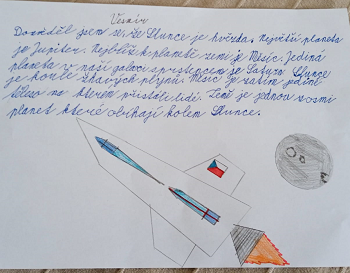 Vesmír
Dověděl jsem se, že Slunce je hvězda, největší planeta
je Jupiter. Nejblíž k planetě zemi je Měsíc. Jediná
planeta v naší galaxi s prstencem je Saturn. Slunce
je koule žhavých plynů. Měsíc je zatím jediné
těleso na kterém přistáli lidé. Země je jednou z osmi
planet které obíhají kolem Slunce.